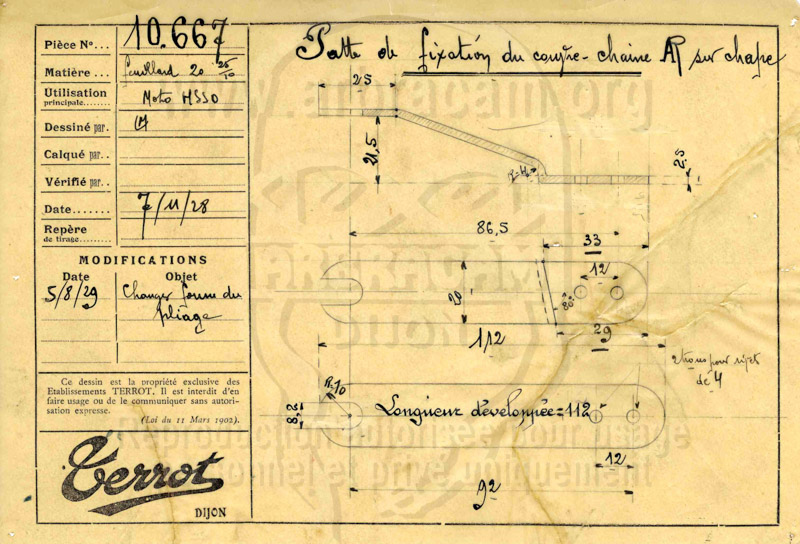 Pièce N°... 10.667
Matière... feuillard 20 25/10
Utilisation
principale........ Moto HSSO
Dessiné par.
Calqué par..
Vérifié par..
Date....... 7/11/28
Repère
de tirage.......
MODIFICATIONS
Date Objet
5/8/29 Changer forme du
pliage
Ce dessin est la propriété exclusive des
Etablissements TERROT. Il est interdit d'en
faire usage ou de le communiquer sans autori-
sation expresse.
(Loi du 11 Mars 1902).
Terrot
DIJON
Patte de fixation du couvre-chaine AR sur chape
25
21,5
R=4
2,5
86,5
33
12
20
80°
29
112
2 trous pour rivet
de 4
R=10
8,2
Longueur développée=112
12
92
www.arbracam.org
ARBRACAM
DIJON
Reproduction
personnel et privé uniquement